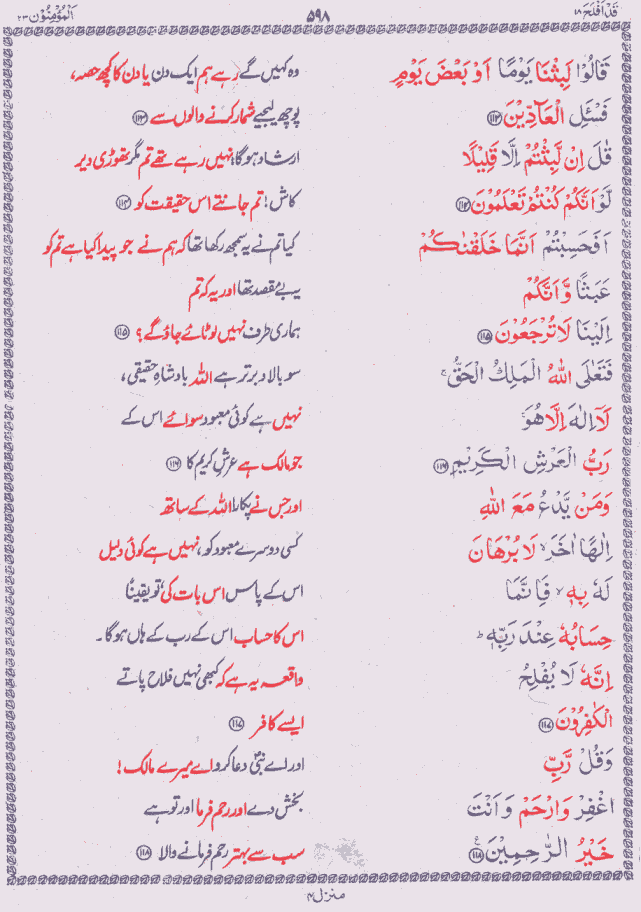 قَدْ اَفْلَحَ ۱۸ ۵۹۸ اَلْمُؤْمِنُوْن ۲۳
قَالُوْا لَبِثْنَا يَوْمًا اَوْ بَعْضَ يَوْمٍ وہ کہیں گے رہے ہم ایک دن یا دن کا کچھ حصہ،
فَسْـَٔلِ الْعَآدِّيْنَ ۝۱۱۳ پوچھ لیجیے شمار کرنے والوں سے ۝۱۱۳
قٰلَ اِنْ لَّبِثْتُمْ اِلَّا قَلِيْلًا ارشاد ہوگا: نہیں رہے تھے تم مگر تھوڑی دیر
لَّوْ اَنَّكُمْ كُنْتُمْ تَعْلَمُوْنَ ۝۱۱۴ کاش! تم جانتے اس حقیقت کو ۝۱۱۴
اَفَحَسِبْتُمْ اَنَّمَا خَلَقْنٰكُمْ کیا تم نے یہ سمجھ رکھا تھا کہ ہم نے جو پیدا کیا ہے تم کو
عَبَثًا وَّاَنَّكُمْ یہ بے مقصد تھا اور یہ کہ تم
اِلَيْنَا لَا تُرْجَعُوْنَ ۝۱۱۵ ہماری طرف نہیں لوٹائے جاؤ گے؟ ۝۱۱۵
فَتَعٰلَى اللّٰهُ الْمَلِكُ الْحَقُّ ۚ سو بالا و برتر ہے اللہ بادشاہِ حقیقی،
لَآ اِلٰهَ اِلَّا هُوَ ۚ نہیں ہے کوئی معبود سوائے اس کے
رَبُّ الْعَرْشِ الْكَرِيْمِ ۝۱۱۶ جو مالک ہے عرشِ کریم کا ۝۱۱۶
وَمَنْ يَّدْعُ مَعَ اللّٰهِ اور جس نے پکارا اللہ کے ساتھ
اِلٰهًا اٰخَرَ ۙ لَا بُرْهَانَ کسی دوسرے معبود کو، نہیں ہے کوئی دلیل
لَهٗ بِهٖ ۙ فَاِنَّمَا اس کے پاس اس بات کی، تو یقیناً
حِسَابُهٗ عِنْدَ رَبِّهٖ ؕ اس کا حساب اس کے رب کے ہاں ہوگا۔
اِنَّهٗ لَا يُفْلِحُ واقعہ یہ ہے کہ کبھی نہیں فلاح پاتے
الْكٰفِرُوْنَ ۝۱۱۷ ایسے کافر ۝۱۱۷
وَقُلْ رَّبِّ اور اے نبیؐ دعا کرو اے میرے مالک!
اغْفِرْ وَارْحَمْ وَاَنْتَ بخش دے اور رحم فرما اور تو ہے
خَيْرُ الرّٰحِمِيْنَ ۝۱۱۸ سب سے بہتر رحم فرمانے والا ۝۱۱۸
منزل ۴